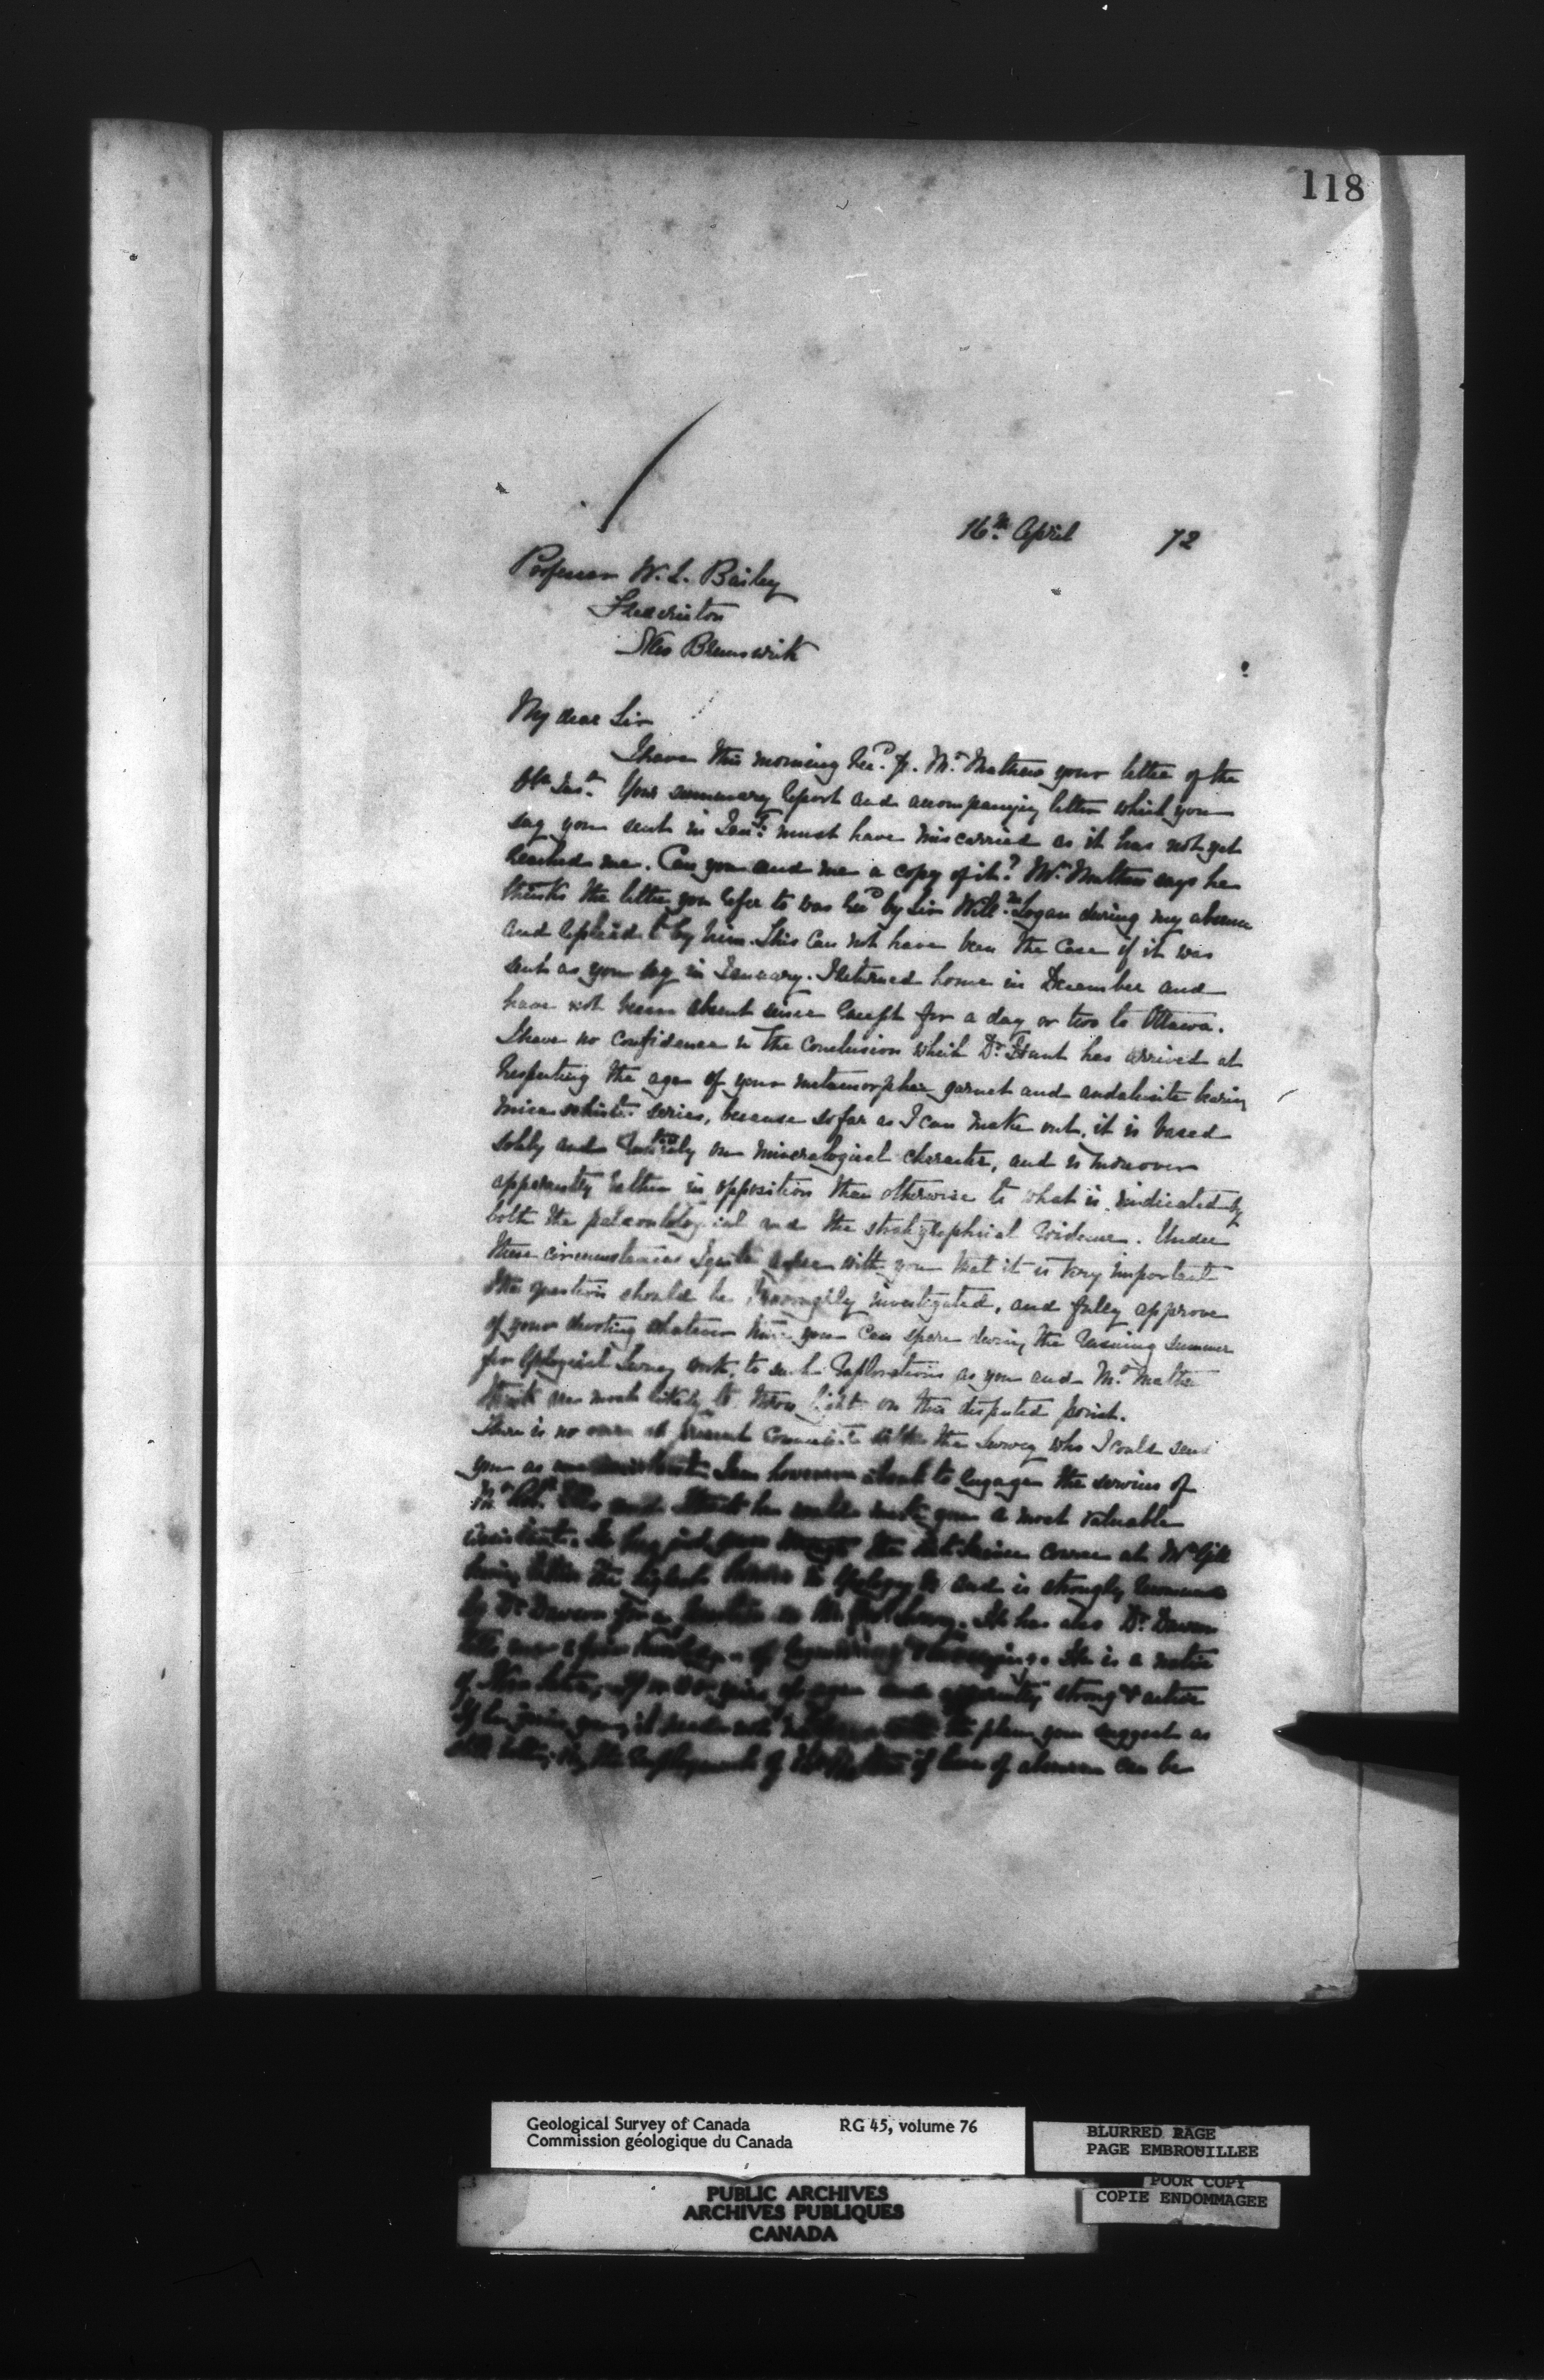 118
16th April 72
Professor W. L. Bailey
Fredericton
New Brunswick
My dear Sir
I have this morning recd. fr. Mr Mathew your letter of the
inst. Your summary report and accompanying letter which you
say you sent in Jany. must have miscarried as it has not yet
reached me. Can you send me a copy of it? Mr Mathew says he
thinks the letter you refer to was recd by Sir Willm. Logan during my absence
and replied to by him. This can not have been the case if it was
sent as you say in January. I returned home in December and
have not been absent since except for a day or two to Ottawa.
I have no confidence in the conclusion which Dr. Hunt has arrived at
respecting the age of your metamorphic garnet and andalusite bearing
mica schist series, because so far as I can make out, it is based
solely and entirely on mineralogical character, and is moreover
apparently rather in opposition than otherwise to what is indicated by
both the palæontological and the stratigraphical evidence. Under
these circumstances I quite agree with you that it is very important
the question should be thoroughly investigated, and fully approve
of your devoting whatever time you can spare during the ensuing summer
for Geological Survey work, to such explorations as you and Mr Mathew
think are most likely to throw light on this disputed point.
There is no one at present connected with the Survey who I could send
you as an assistant. I am however about to engage the services of
Mr Robt. Ells and I think he would make you a most valuable
assistant. He has just gone through the course at McGill
having taken the highest honors in Geology & and is strongly recommended
by Dr Dawson for a position in the Survey. He has also Dr. Dawson
tells me a fair knowledge of & surveying. He is a native
of Nova Scotia, years of age and apparently strong & active
If he joins you, it need not the plan you suggest as
the employment of if leave of absence can be
Geological Survey of Canada RG 45, volume 76
Commission géologique du Canada
BLURRED PAGE
PAGE EMBROUILLEE
POOR COPY
COPIE ENDOMMAGEE
PUBLIC ARCHIVES
ARCHIVES PUBLIQUES
CANADA